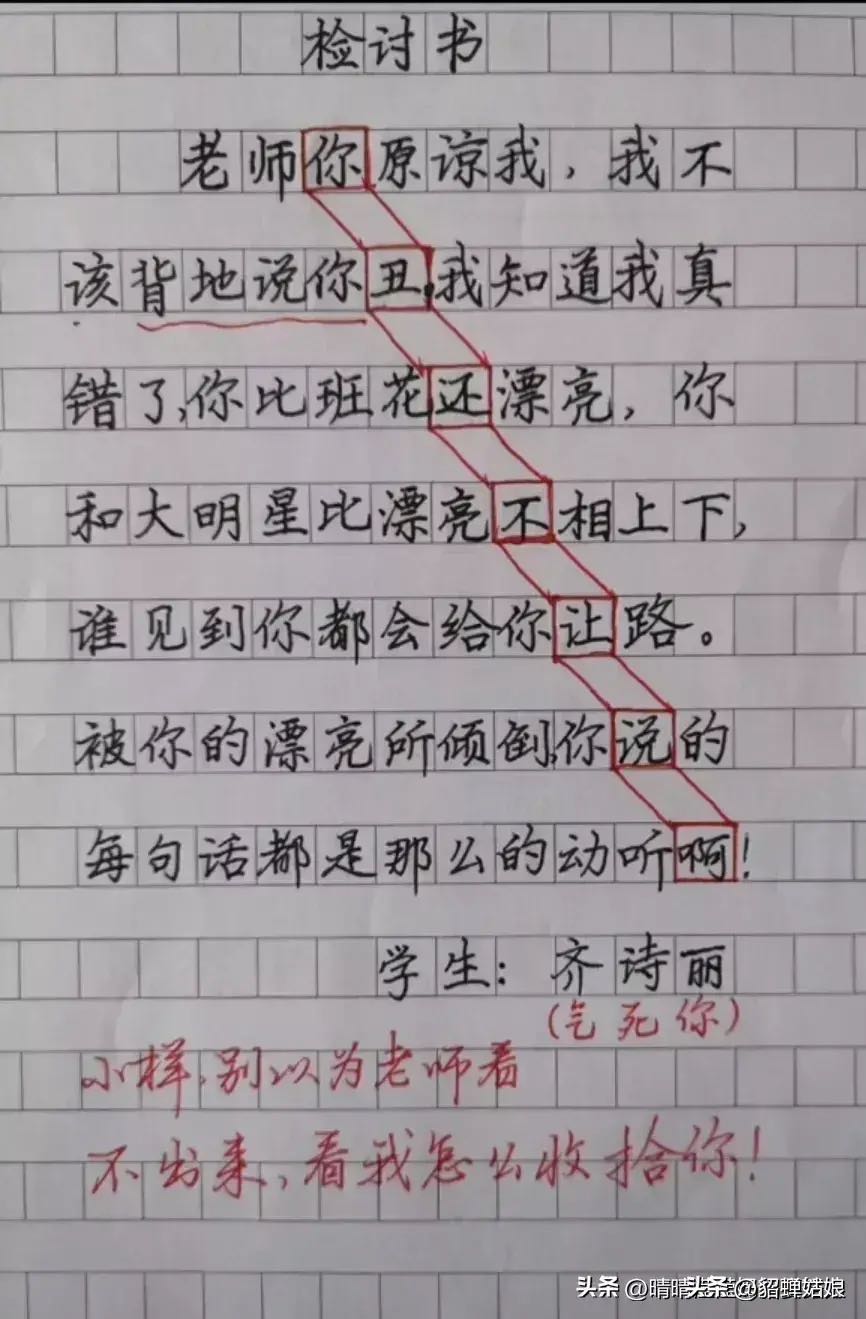 检讨书
老师你原谅我，我不
该背地说你丑，我知道我真
错了，你比班花还漂亮，你
和大明星比漂亮不相上下，
谁见到你都会给你让路。
被你的漂亮所倾倒，你说的
每句话都是那么的动听啊！
学生：齐诗丽
（气死你）
小样，别以为老师看
不出来，看我怎么收拾你！
头条 @晴晴 头条 @貂蝉姑娘